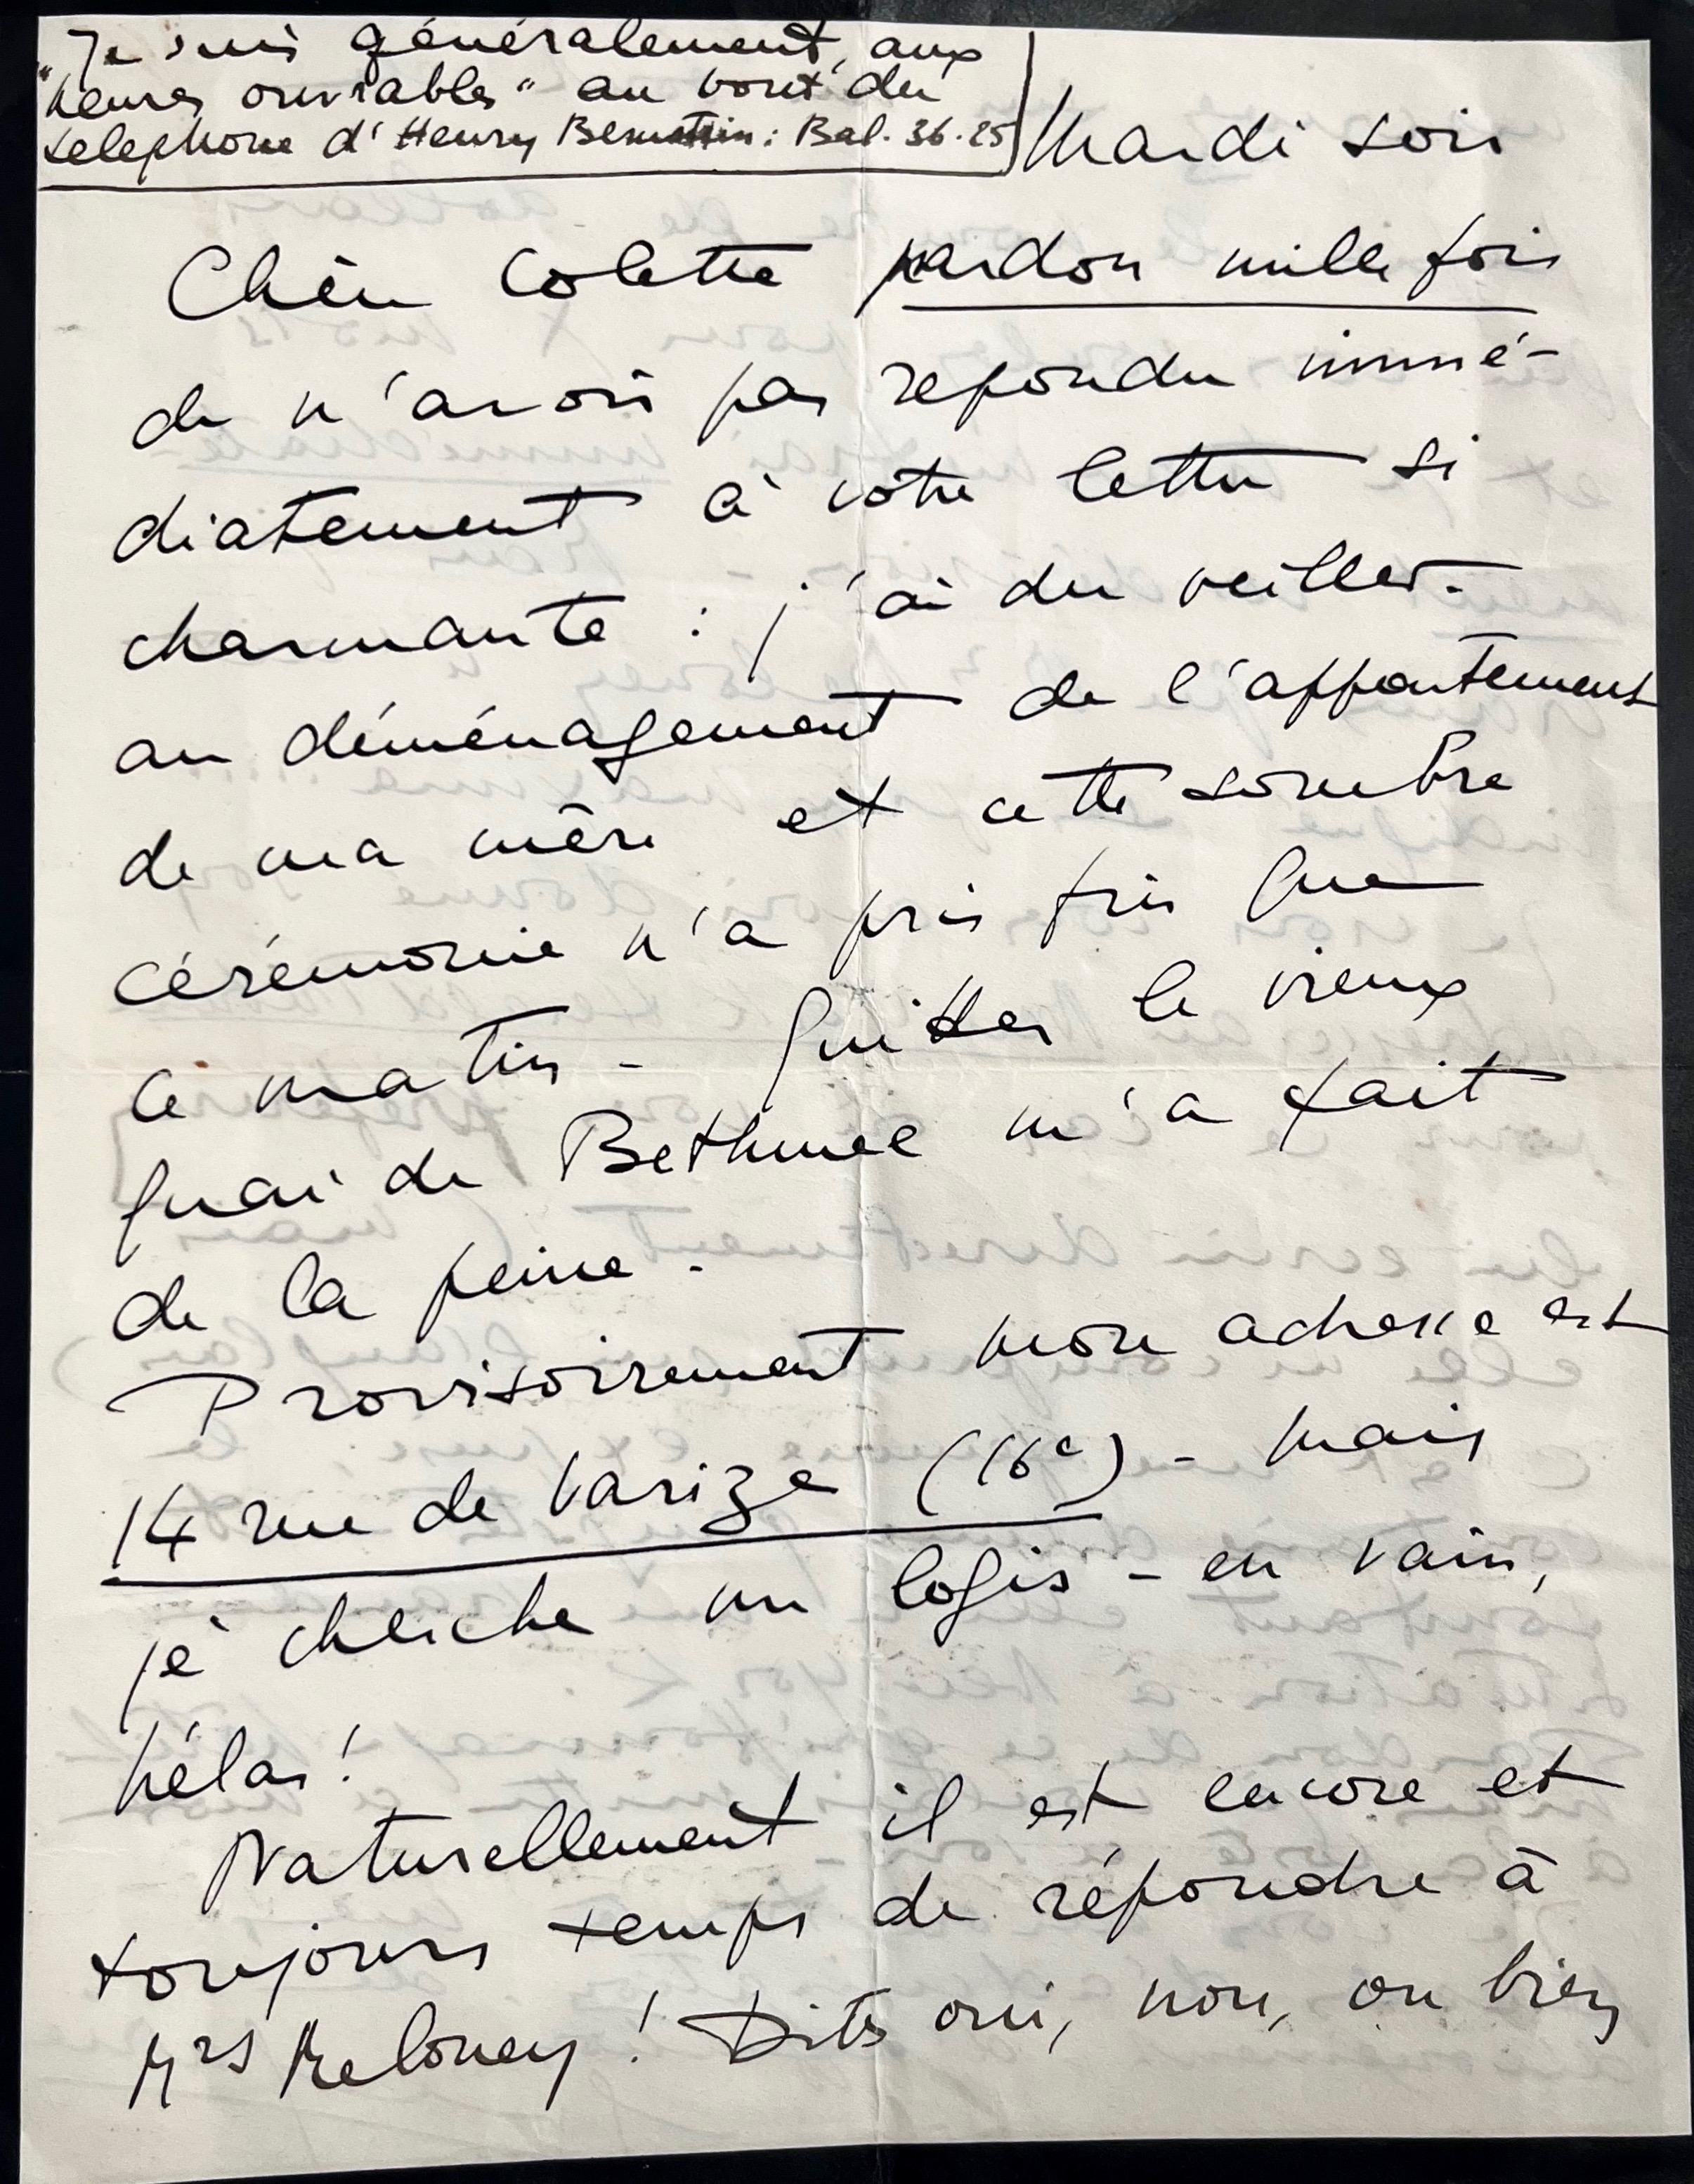 "Je suis généralement, aux
heures ouvrables" au bout du
telephone d'Henry Bernstein : Bal. 36.25
Mardi soir
Chère Colette pardon mille fois
de n'avoir pas repondu immé-
diatement à votre lettre si
charmante : j'ai du veiller
au déménagement de l'appartement
de ma mère et cette sombre
cérémonie n'a pris fin que
ce matin - Quitter le vieux
quai de Bethune m'a fait
de la peine -
Provisoirement mon adresse est
14 rue de Varize (16e) - Mais
je cherche un logis - en vain,
hélas !
Naturellement il est encore et
toujours temps de répondre à
Mrs Meloney ! Dites oui, non, ou bien